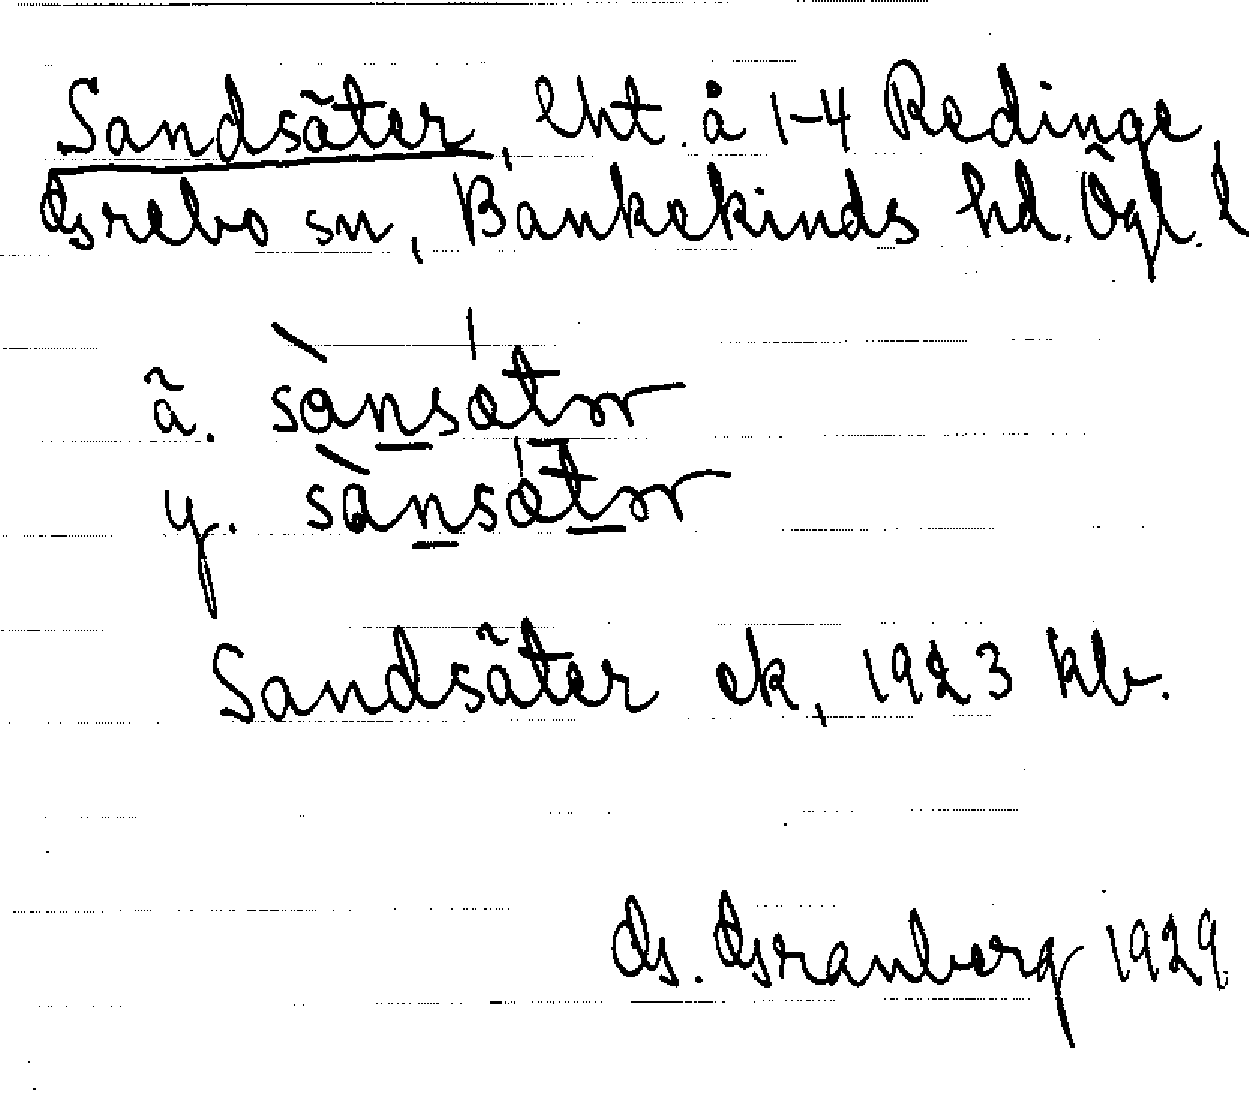 Sandsäter, lht. å 1-4 Redinge
Grebo sn, Bankekinds hd. Ögl. l
ä. sànsátor
y. sànsátor
Sandsäter ek, 1923 klv.
G. Granberg 1929